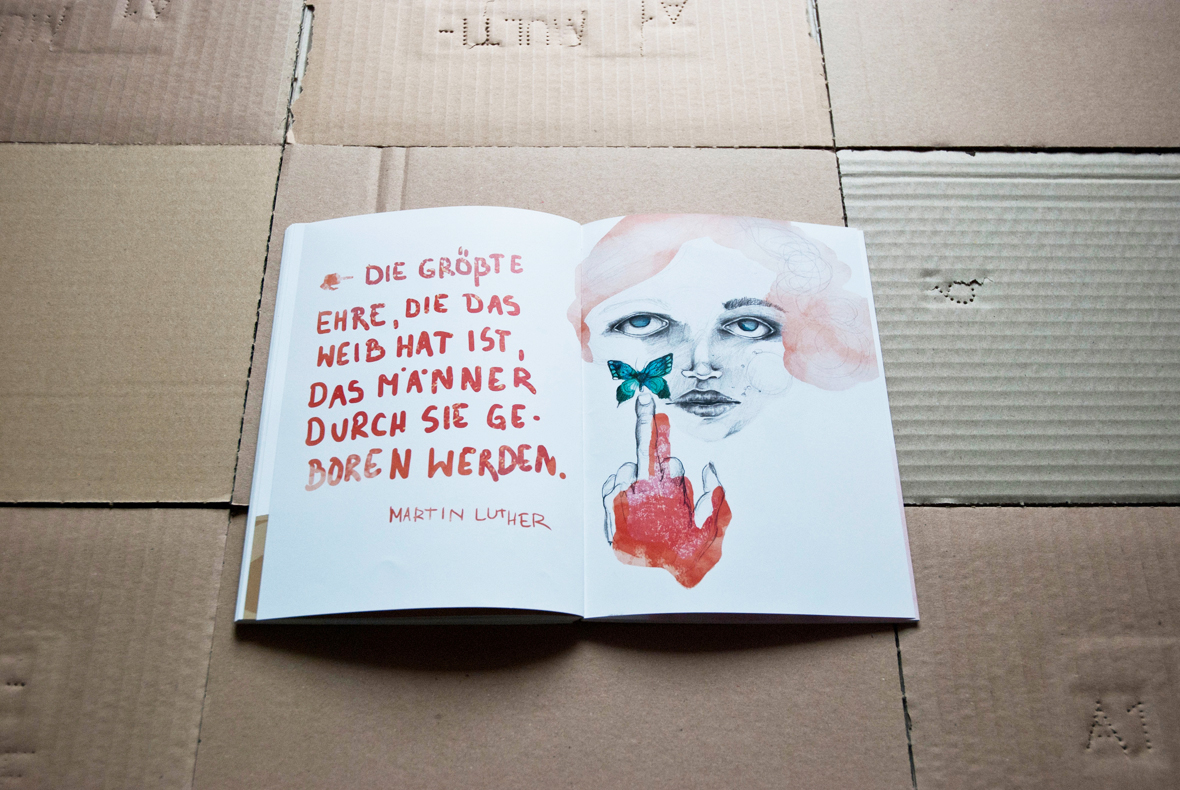 DIE GRÖßTE
EHRE, DIE DAS
WEIB HAT IST,
DAS MÄNNER
DURCH SIE GE-
BOREN WERDEN.
MARTIN LUTHER
A1